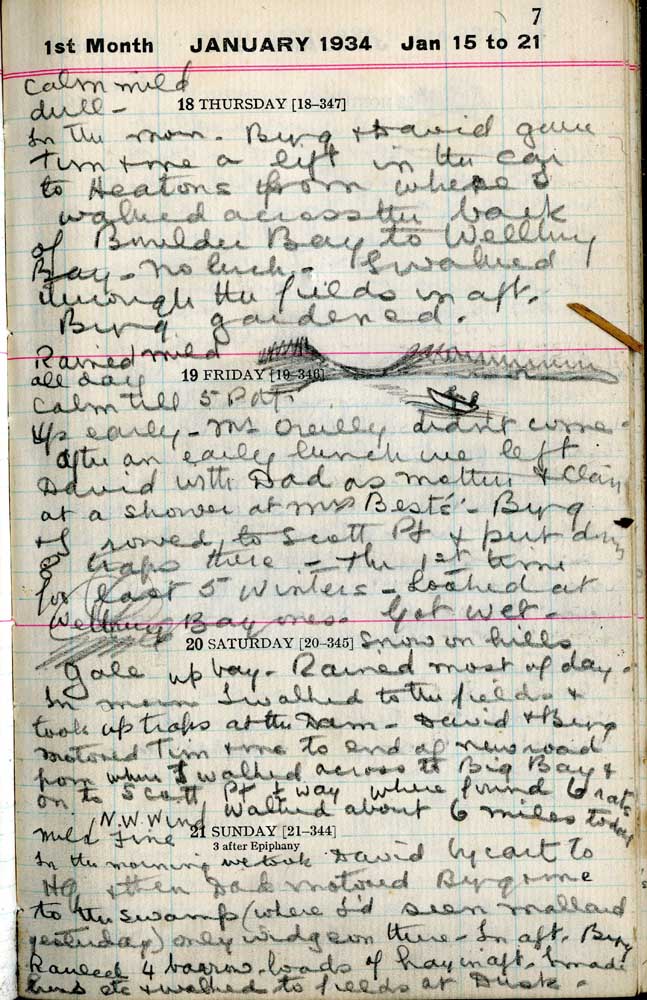 7
1st Month JANUARY 1934 Jan 15 to 21
Calm mild
dull -
18 THURSDAY [18–347]
In the morn. Byrg & David gave
Tim & me a lift in the car
to Heatons from where I
walked across the back
of Boulder Bay to Wellbury
Bay - no luck - I walked
through the fields in aft.
Byrg gardened.
Rained mild
all day
19 FRIDAY [19–346]
Calm till 5 P.M.
Up early - Mrs Oreilly didnt come -
After an early lunch we left
David with Dad as mother & Clair
at a shower at Mrs Best's - Byrg
& I rowed to Scott Pt & put dry
8 traps there - the 1st time
for last 5 winters - Looked at
Wellbury Bay ones. Got wet -
20 SATURDAY [20–345] Snow on hills
Gale up bay - Rained most of day -
In morn I walked to the fields &
took up traps at the Dam - David & Byrg
motored Tim & me to end of new road
from where I walked across to Big Bay &
on to Scott Pt & way where found 6 rats
N.W. Wind Walked about 6 miles today
Mild Fine
21 SUNDAY [21–344]
3 after Epiphany
In the morning we took David by cart to
HQ & then Dad motored Byrg & me
to the swamp (where I'd seen mallard
yesterday) only widgeon there - In aft. Byrg
hauled 4 barrow-loads of hay in aft. I
etc & walked to fields at Dusk -